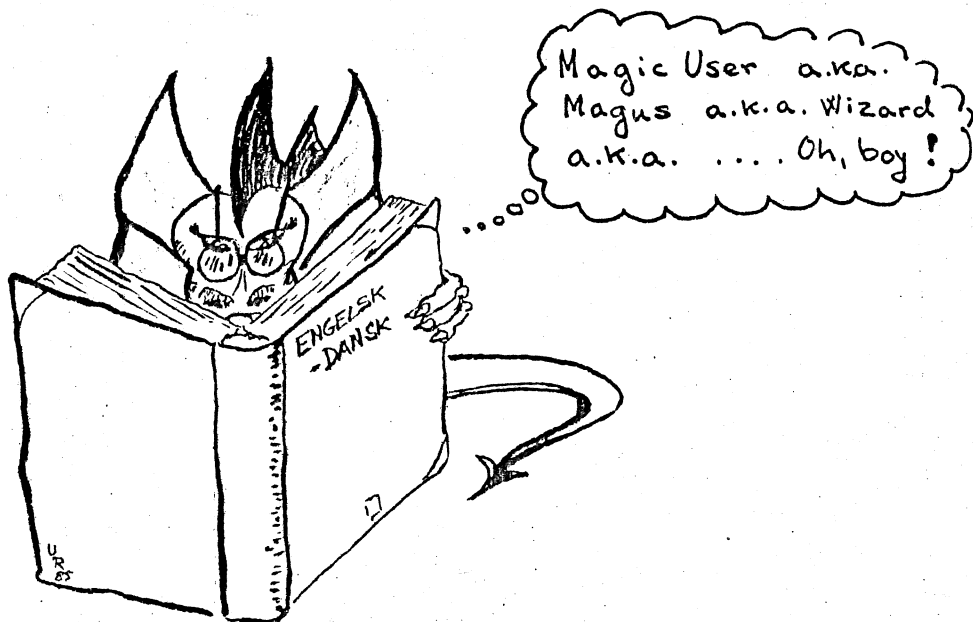 Magic User a.k.a.
Magus a.k.a. Wizard
a.k.a. .... Oh, boy!
ENGELSK
-DANSK
U
R
85